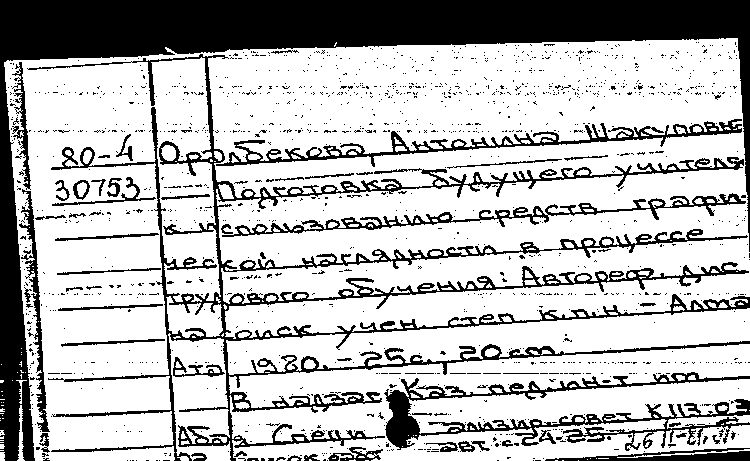 80-4 Оралбекова, Антонина Шакуповна
30753 Подготовка будущего учителя
к использованию средств графи-
ческой наглядности в процессе
трудового обучения: Автореф. дис.
на соиск. учен. степ к.п.н. - Алма
Ата, 1980. - 25с.; 20 см.
В надзаг: Каз. пед. ин-т им.
Абая Специ ализир. совет К113.03
Список работ авт.: с. 24-25.